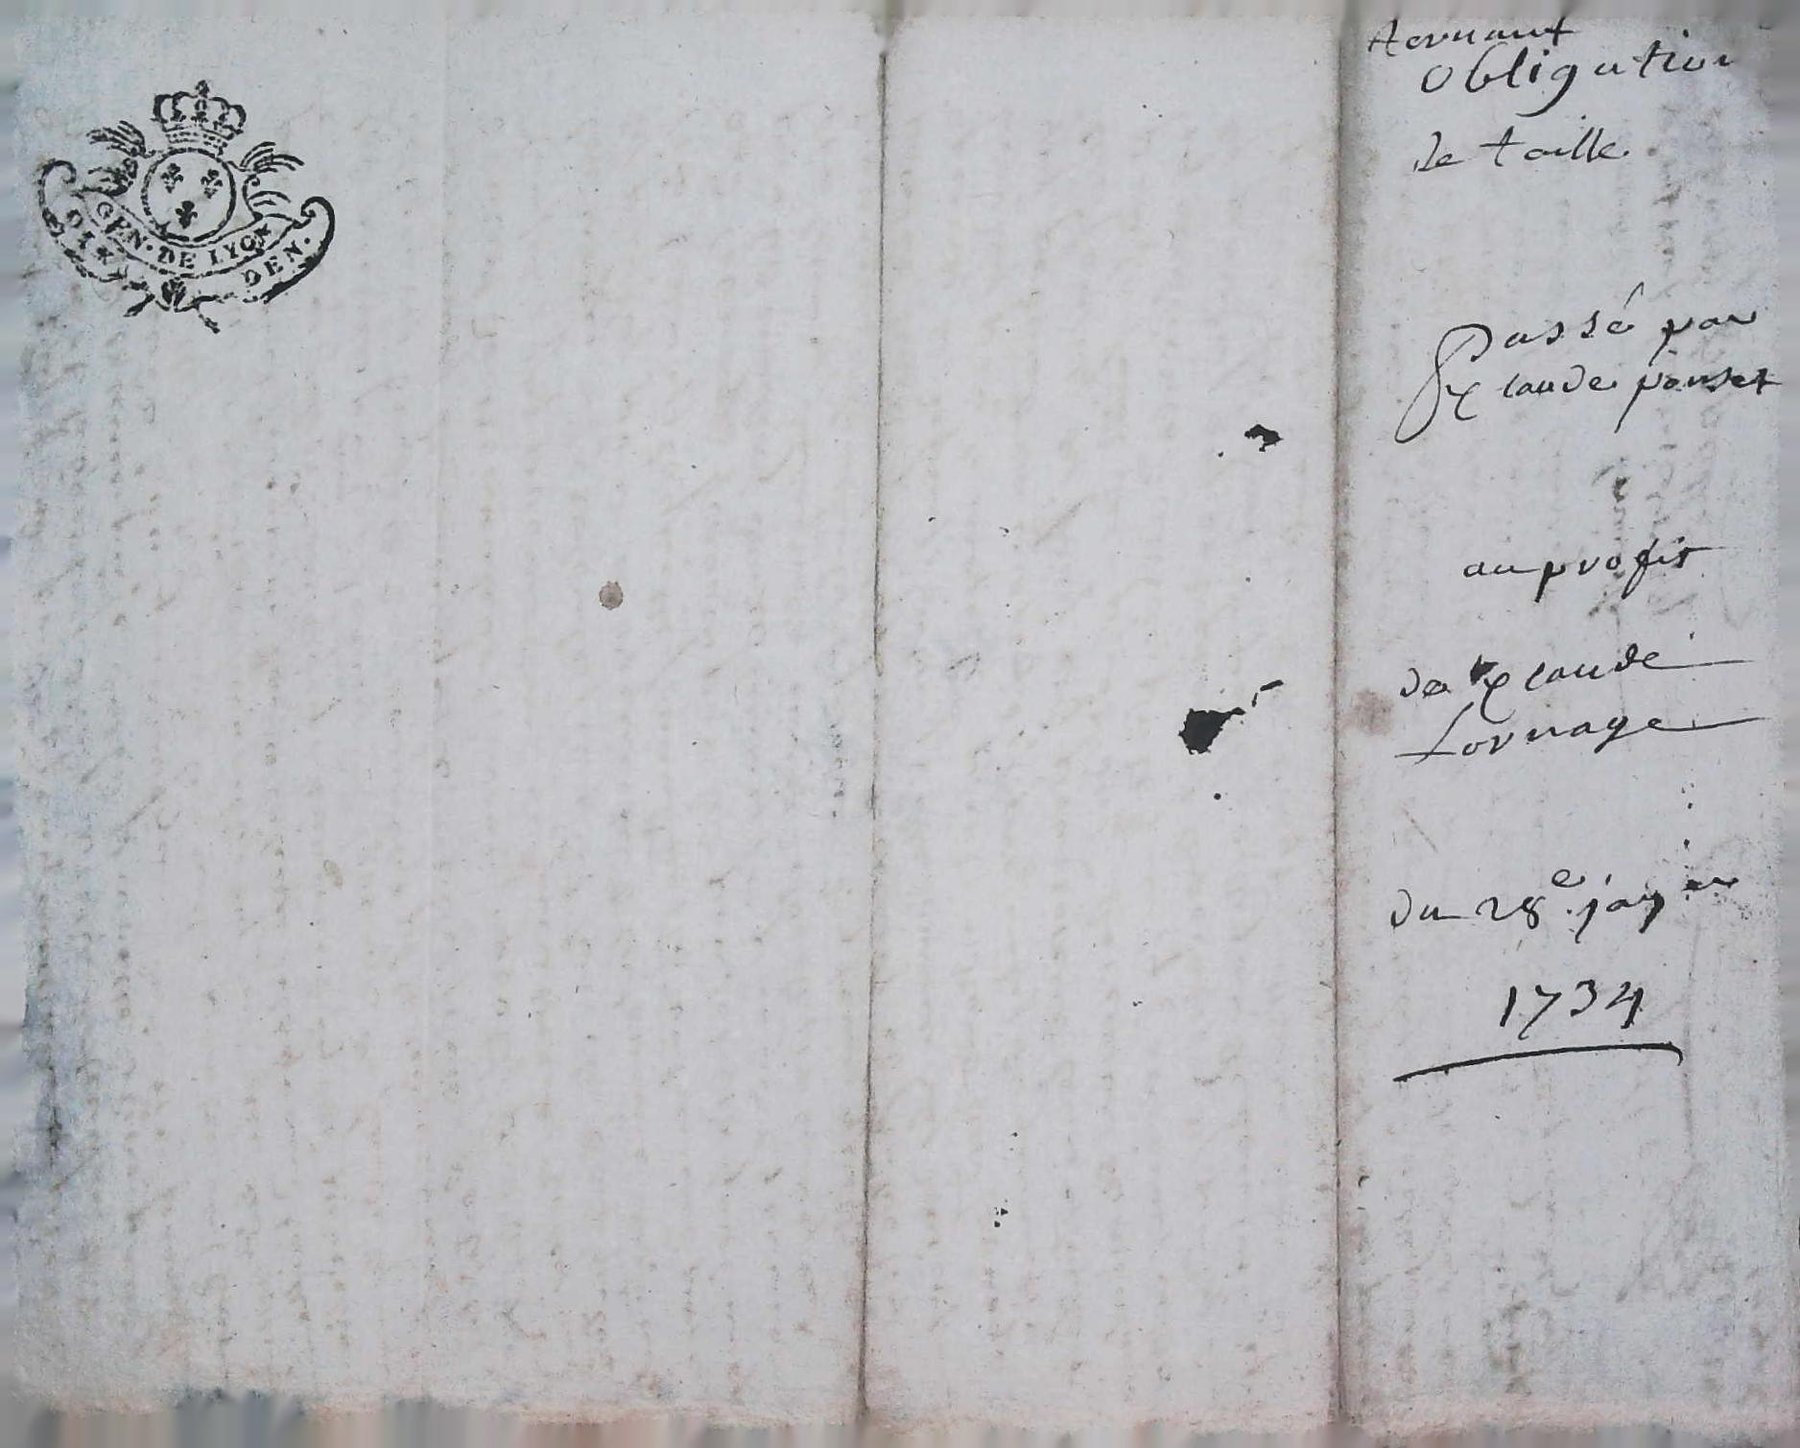 GEN · DE LYON
DIX DEN.
Obligation
de taille
Passé par
Claude ponset
au profit
de Claude
Lornage
du 28e janer
1734